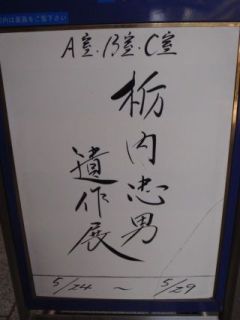 A室・B室・C室
栃内忠男
遺作展
5/24 ～ 5/29